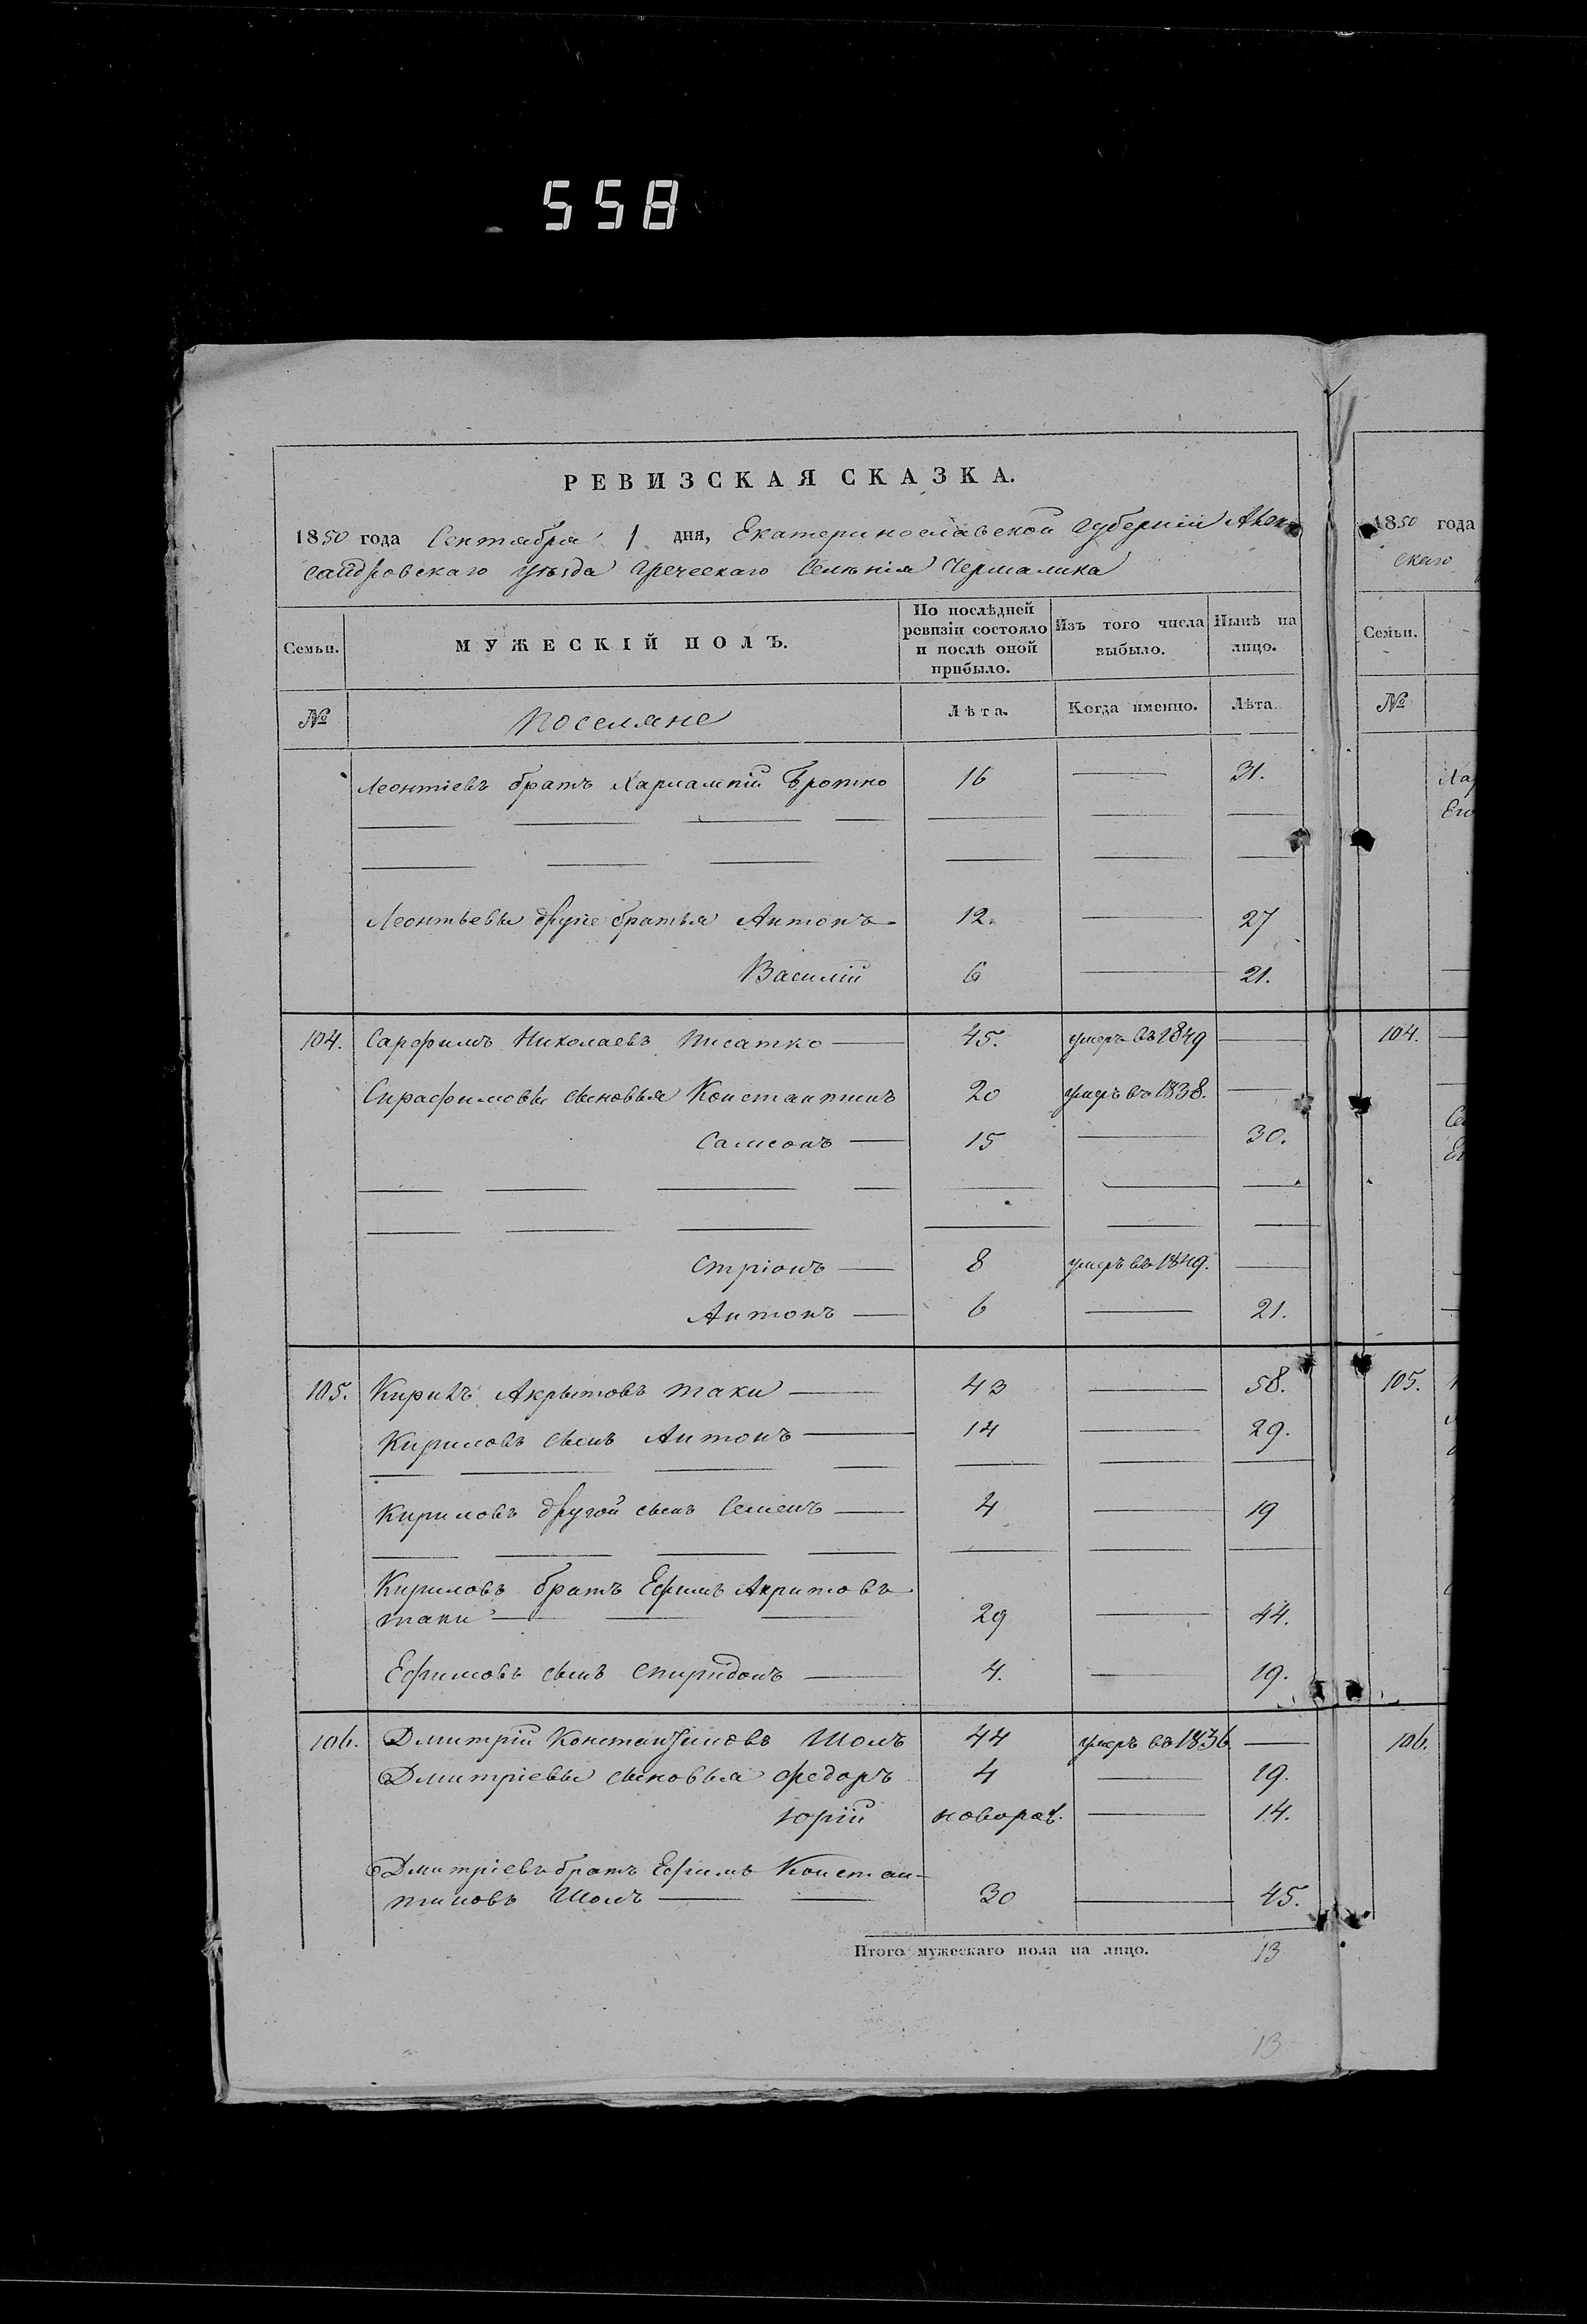 558
РЕВИЗСКАЯ СКАЗКА.
1850 года Сентября 1 дня, Екатеринославской Губерніи Алек
сандровскаго Уѣзда Греческаго Селѣнія Чермалика
Семьи. МУЖЕСКІЙ ПОЛЪ. По послѣдней ревизіи состояло и послѣ оной прибыло. Изъ того числа выбыло. Нынѣ на лицо.
№ Поселяне Лѣта. Когда именно. Лѣта
Леонтіевъ братъ Харлампій 16 31.
Леонтьевы другіе братья Антонъ 12. 27
Василій 6 21.
104. Сарафимъ Николаевъ Писатко 45. умеръ въ 1849
Сирафимовы сыновья Константинъ 20 умеръ въ 1838.
Самсонъ 15 30.
Стріонъ 8 умеръ въ 1849.
Антонъ 6 21.
105. Кирилъ Акрытовъ таки 43 58.
Кириловъ сынъ Антонъ 14 29.
Кириловъ другой сынъ Семенъ 4 19
Кириловъ братъ Ефимъ Акритовъ
таки 29 44.
Ефимовъ сынъ Спиридонъ 4. 19.
106. Дмитрій Константиновъ Шолъ 44 умеръ въ 1836
Дмитріевы сыновья Федоръ 4 19.
Юрій новорож. 14.
Дмитріевъ братъ Ефимъ Констан-
тиновъ Шолъ 30 45.
Итого мужескаго пола на лицо. 13
13
1850 года
скаго
Семьи.
№
Хар
Его
104.
105.
106.